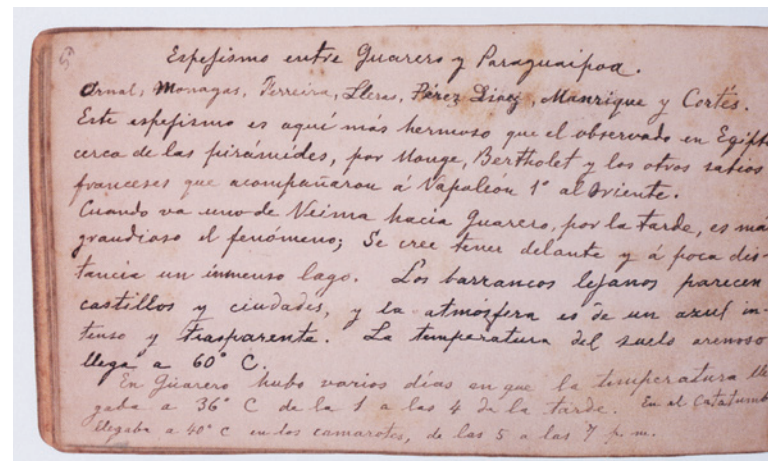 59
Espejismo entre Guarero y Paraguaipoa.
Arnal, Monagas, Ferreira, Lleras, Pérez Díaz, Manrique y Cortés.
Este espejismo es aquí más hermoso que el observado en Egipto
cerca de las pirámides, por Monge, Bertholet y los otros sabios
franceses que acompañaron á Napoleón 1° al Oriente.
Cuando va uno de Neima hacia Guarero, por la tarde, es más
grandioso el fenómeno; Se cree tener delante y á poca dis-
tancia un inmenso lago. Los barrancos lejanos parecen
castillos y ciudades, y la atmósfera es de un azul in-
tenso y trasparente. La temperatura del suelo arenoso
llega a 60° C.
En Guarero hubo varios días en que la temperatura lle
gaba a 36° C de la 1 a las 4 de la tarde. En el Catatumb
llegaba a 40° C en los camarotes, de las 5 a las 7 p. m.